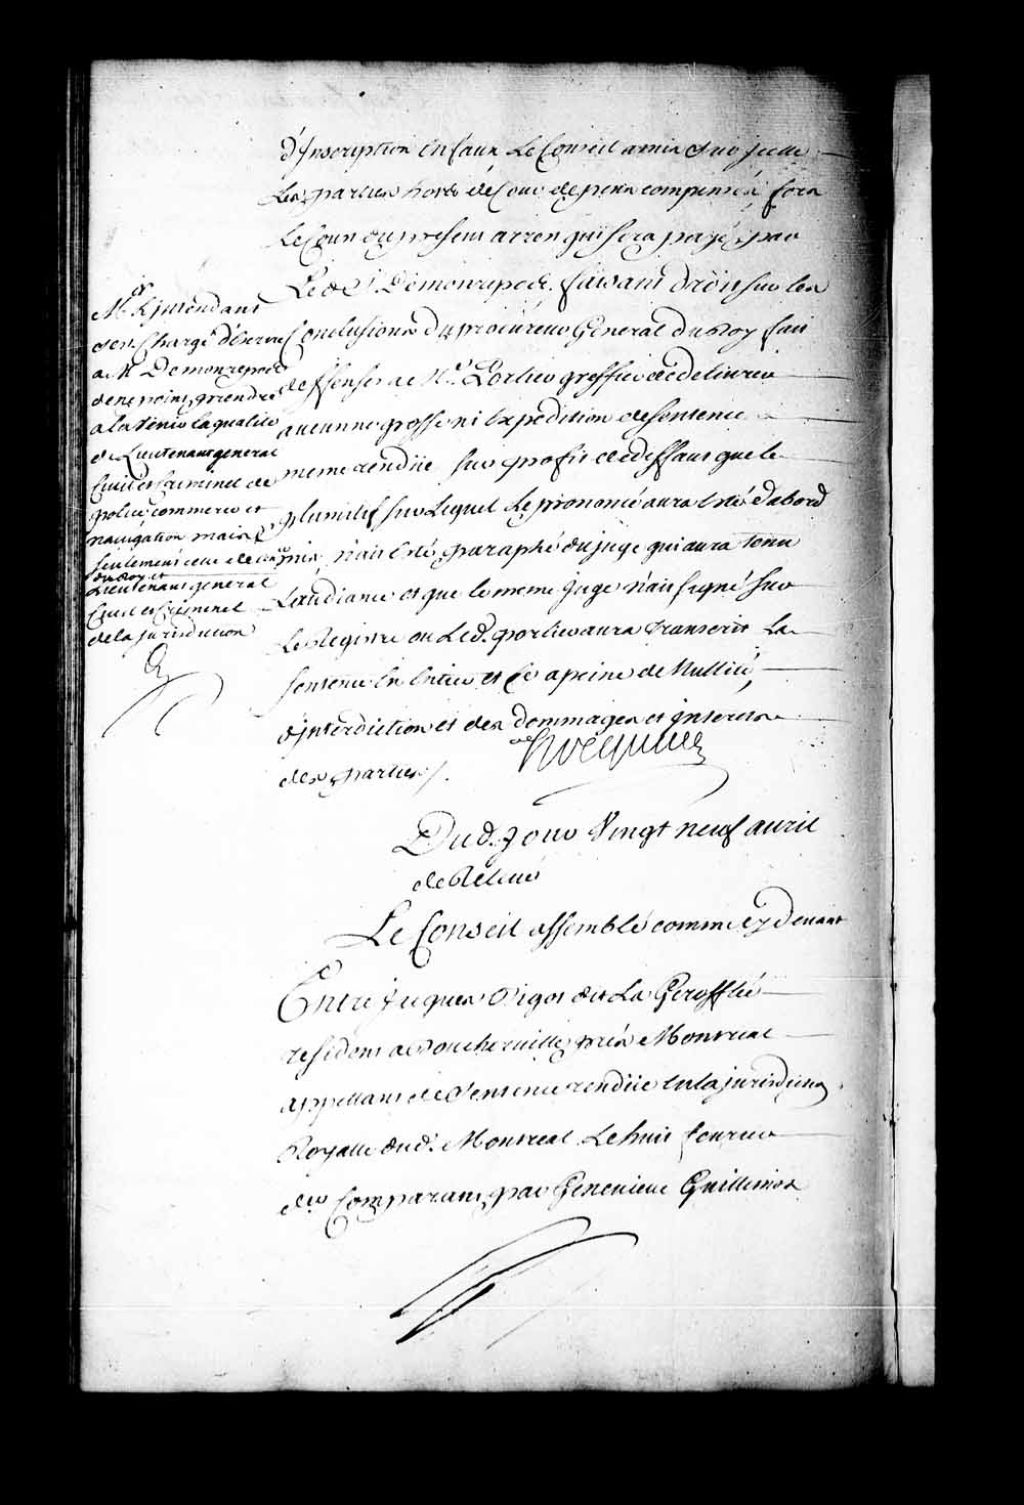 d'Inscription en faux Le Conseil a mis et sur jcelle
Les parties hors de Cour depens compensés fors
Le Cout du present arrest qui sera payé par
Led. Sr. Demonrepos. faisant droit sur les
Conclusions du procureur General du Roy fait
deffenses a Me. Porlier greffier de delivrer
aucunne grosse ni Expedition de sentence
meme rendüe sur profit de deffaut que le
plumitif sur Lequel le prononcé aura Eté d'abord
mis n'ait Eté paraphé du juge qui aura tenu
L'audiance et que le meme juge n'ait signé sur
Le Registre ou Led. porlier aura transcrit La
sentence En Entier et Ce a peine de Nullité,
d'jnterdiction et des Dommages et jnterets
des parties /.
hocquart
Mr. L'jntendant
s'est Chargé d'Ecrire
a Mr Demonrepos
de ne point prendre
a la Venir la qualité
de Lieutenant general
Civil et Criminel de
police commerce et
navigation mais
seulement celle de
du Roy et
Lieutenant general
Civil et Criminel
de la jurisdiction
Dud. Jour Vingt neuf avril
de Relevé
Le Conseil assemblé comme cy devant
Entre Jacques Bigot dit La Girofflée
resident a Boucherville, près Montreal
appellant de Sentence rendüe En la jurisdiction
Royalle dud. Montreal Le huit fevrier
der. Comparant par Genevieve Guillimot